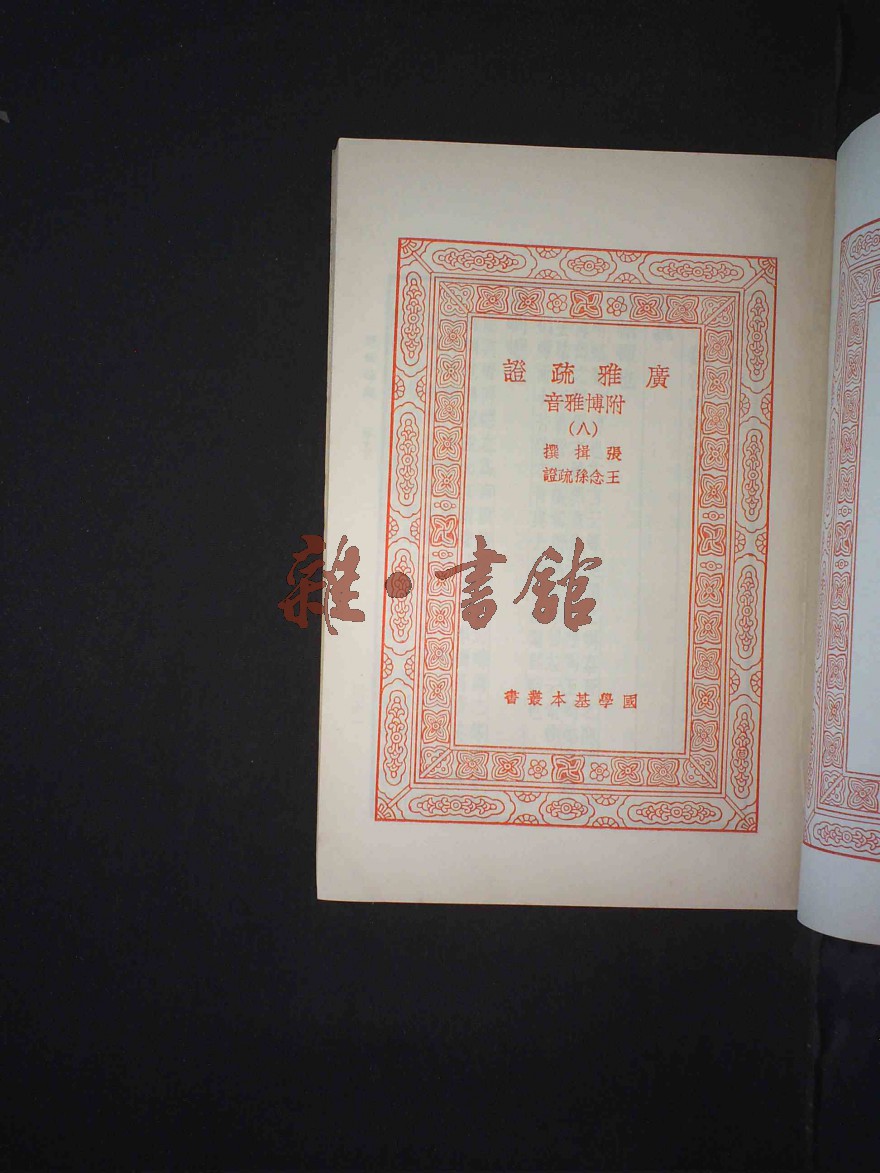 廣雅疏證
附博雅音
（八）
張揖撰
王念孫疏證
雜·書館
國學基本叢書